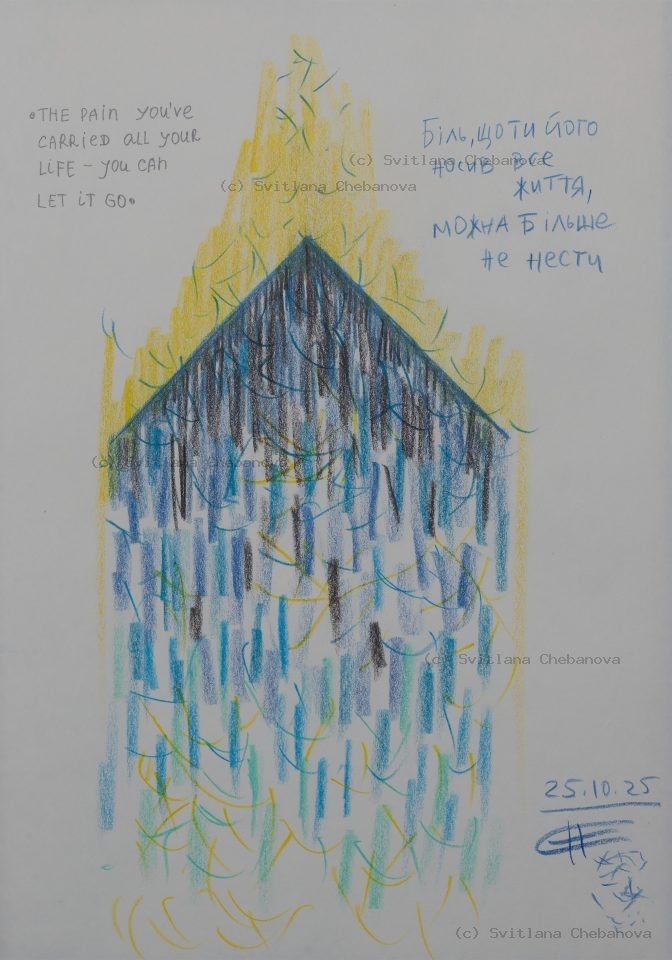 •THE PAIN YOU'VE
CARRIED ALL YOUR
LIFE – YOU CAN
LET IT GO•
Біль, що ти його
носив все
життя,
можна більше
не нести
(c) Svitlana Chebanova
(c) Svitlana Chebanova
(c) Svitlana Chebanova
(c) Svitlana Chebanova
25.10.25
(c) Svitlana Chebanova